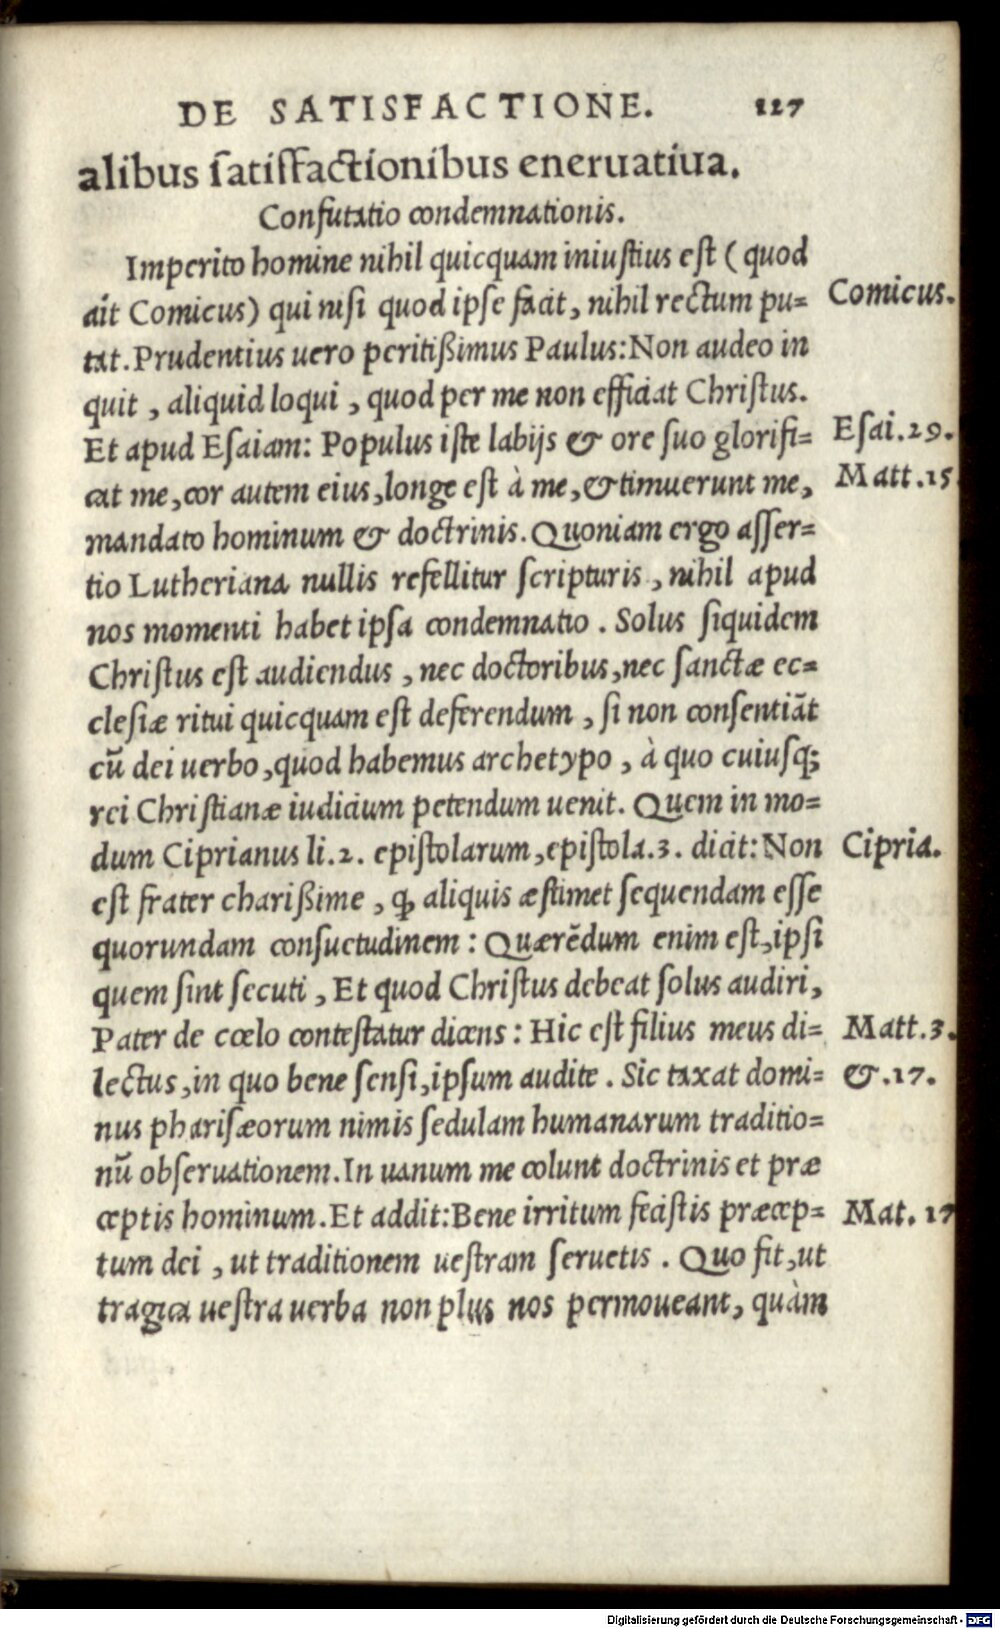 DE SATISFACTIONE. 127
alibus ſatiſfactionibus eneruatiua.
Confutatio condemnationis.
Imperito homine nihil quicquam iniuſtius eſt ( quod
ait Comicus) qui niſi quod ipſe facit, nihil rectum pu-
tat. Prudentius uero peritißimus Paulus: Non audeo in
quit, aliquid loqui, quod per me non efficiat Chriſtus.
Et apud Eſaiam: Populus iſte labijs & ore ſuo glorifi-
cat me, cor autem eius, longe eſt à me, & timuerunt me,
mandato hominum & doctrinis. Quoniam ergo aſſer-
tio Lutheriana nullis refellitur ſcripturis, nihil apud
nos momenti habet ipſa condemnatio. Solus ſiquidem
Chriſtus eſt audiendus, nec doctoribus, nec ſanctæ ec-
cleſiæ ritui quicquam eſt deferendum, ſi non conſentiāt
cū dei uerbo, quod habemus archetypo, à quo cuiuſq;
rei Chriſtianæ iudicium petendum uenit. Quem in mo-
dum Ciprianus li.2. epiſtolarum, epiſtola.3. dicit: Non
eſt frater charißime, ꝙ aliquis æſtimet ſequendam eſſe
quorundam conſuetudinem: Quærēdum enim eſt, ipſi
quem ſint ſecuti, Et quod Chriſtus debeat ſolus audiri,
Pater de cœlo conteſtatur dicens: Hic eſt filius meus di-
lectus, in quo bene ſenſi, ipſum audite. Sic taxat domi-
nus phariſæorum nimis ſedulam humanarum traditio-
nū obſeruationem. In uanum me colunt doctrinis et præ
ceptis hominum. Et addit: Bene irritum feciſtis præcep-
tum dei, ut traditionem ueſtram ſeruetis. Quo fit, ut
tragica ueſtra uerba non plus nos permoueant, quàm
Comicus.
Eſai.29.
Matt.15
Cipria.
Matt.3.
&.17.
Mat. 17
Digitalisierung gefördert durch die Deutsche Forschungsgemeinschaft - DFG